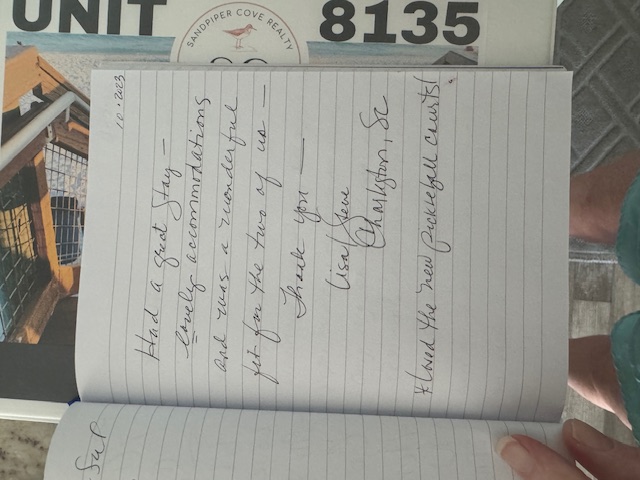 UNIT 8135
SANDPIPER COVE REALTY
10.2023
Had a great stay —
lovely accommodations
and was a wonderful
fit for the two of us —
Thank you —
Lisa/Steve
Charleston, SC
* Loved the new pickleball courts!